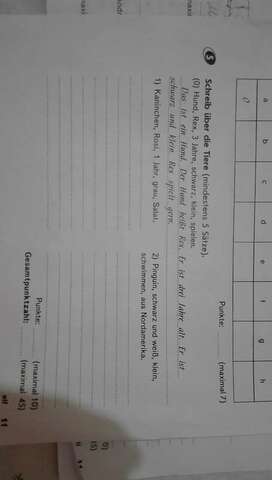 a b c d e f g h
Punkte: (maximal 7)
5 Schreib über die Tiere (mindestens 5 Sätze).
(0) Hund, Rex, 3 Jahre, schwarz, klein, spielen.
Das ist ein Hund. Der Hund heißt Rex. Er ist drei Jahre alt. Er ist
schwarz und klein. Rex spielt gern.
1) Kaninchen, Rosi, 1 Jahr, grau, Salat.
2) Pinguin, schwarz und weiß, klein,
schwimmen, aus Nordamerika.
Punkte: (maximal 10)
Gesamtpunktzahl: (maximal 45)
elf 11